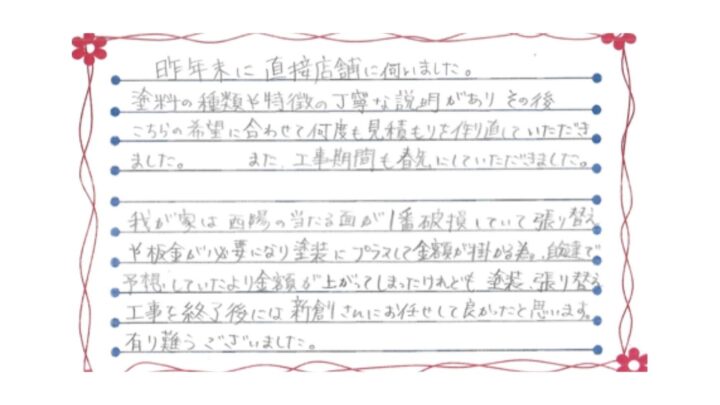 昨年末に直接店舗に伺いました。
塗料の種類や特徴の丁寧な説明があり その後
こちらの希望に合わせて何度も見積もりを作り直していただき
ました。 また、工事期間も春先にしていただきました。
我が家は西陽の当たる面が1番破損していて張り替え
や板金が必要になり塗装にプラスして金額が掛かる為、
予想していたより金額が上がってしまったけれども、塗装、張り替え
工事を終了後には新創さんにお任せして良かったと思います。
有り難うございました。